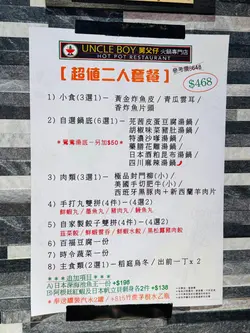 UNCLE BOY 舅父仔 火鍋專門店
HOT POT RESTAURANT
【超值二人套餐】
$468
1) 小食(3選1)— 黃金炸魚皮/青瓜雲耳/
香炸魚片頭
2) 自選鍋底(6選1)— 芫茜皮蛋豆腐湯鍋/
胡椒味菜豬肚湯鍋/
特濃沙嗲湯鍋/
藥膳花雕湯鍋/
日本酒煎昆布湯鍋/
四川麻辣湯鍋/
*鴛鴦湯底一另加$50*
3) 肉類(3選1)— 極品封門柳(小)/
美國手切肥牛(小)/
西班牙黑豚肉+新西蘭羊肉片
4) 手打九雙拼(4件)—(4選2)
鮮蝦丸/墨魚丸/豬肉丸/鯪魚丸
5) 自家製餃子雙拼(4件)—(4選2)
韮菜餃/鮮蝦雲吞/鮮蝦水餃/黑松露雞肉餃
6) 百福豆腐一份
7) 時時食蔬一份
8) 主食類(2選1)— 稻庭烏冬/出前一丁 x 2
***追加項目***
+$198
+$138